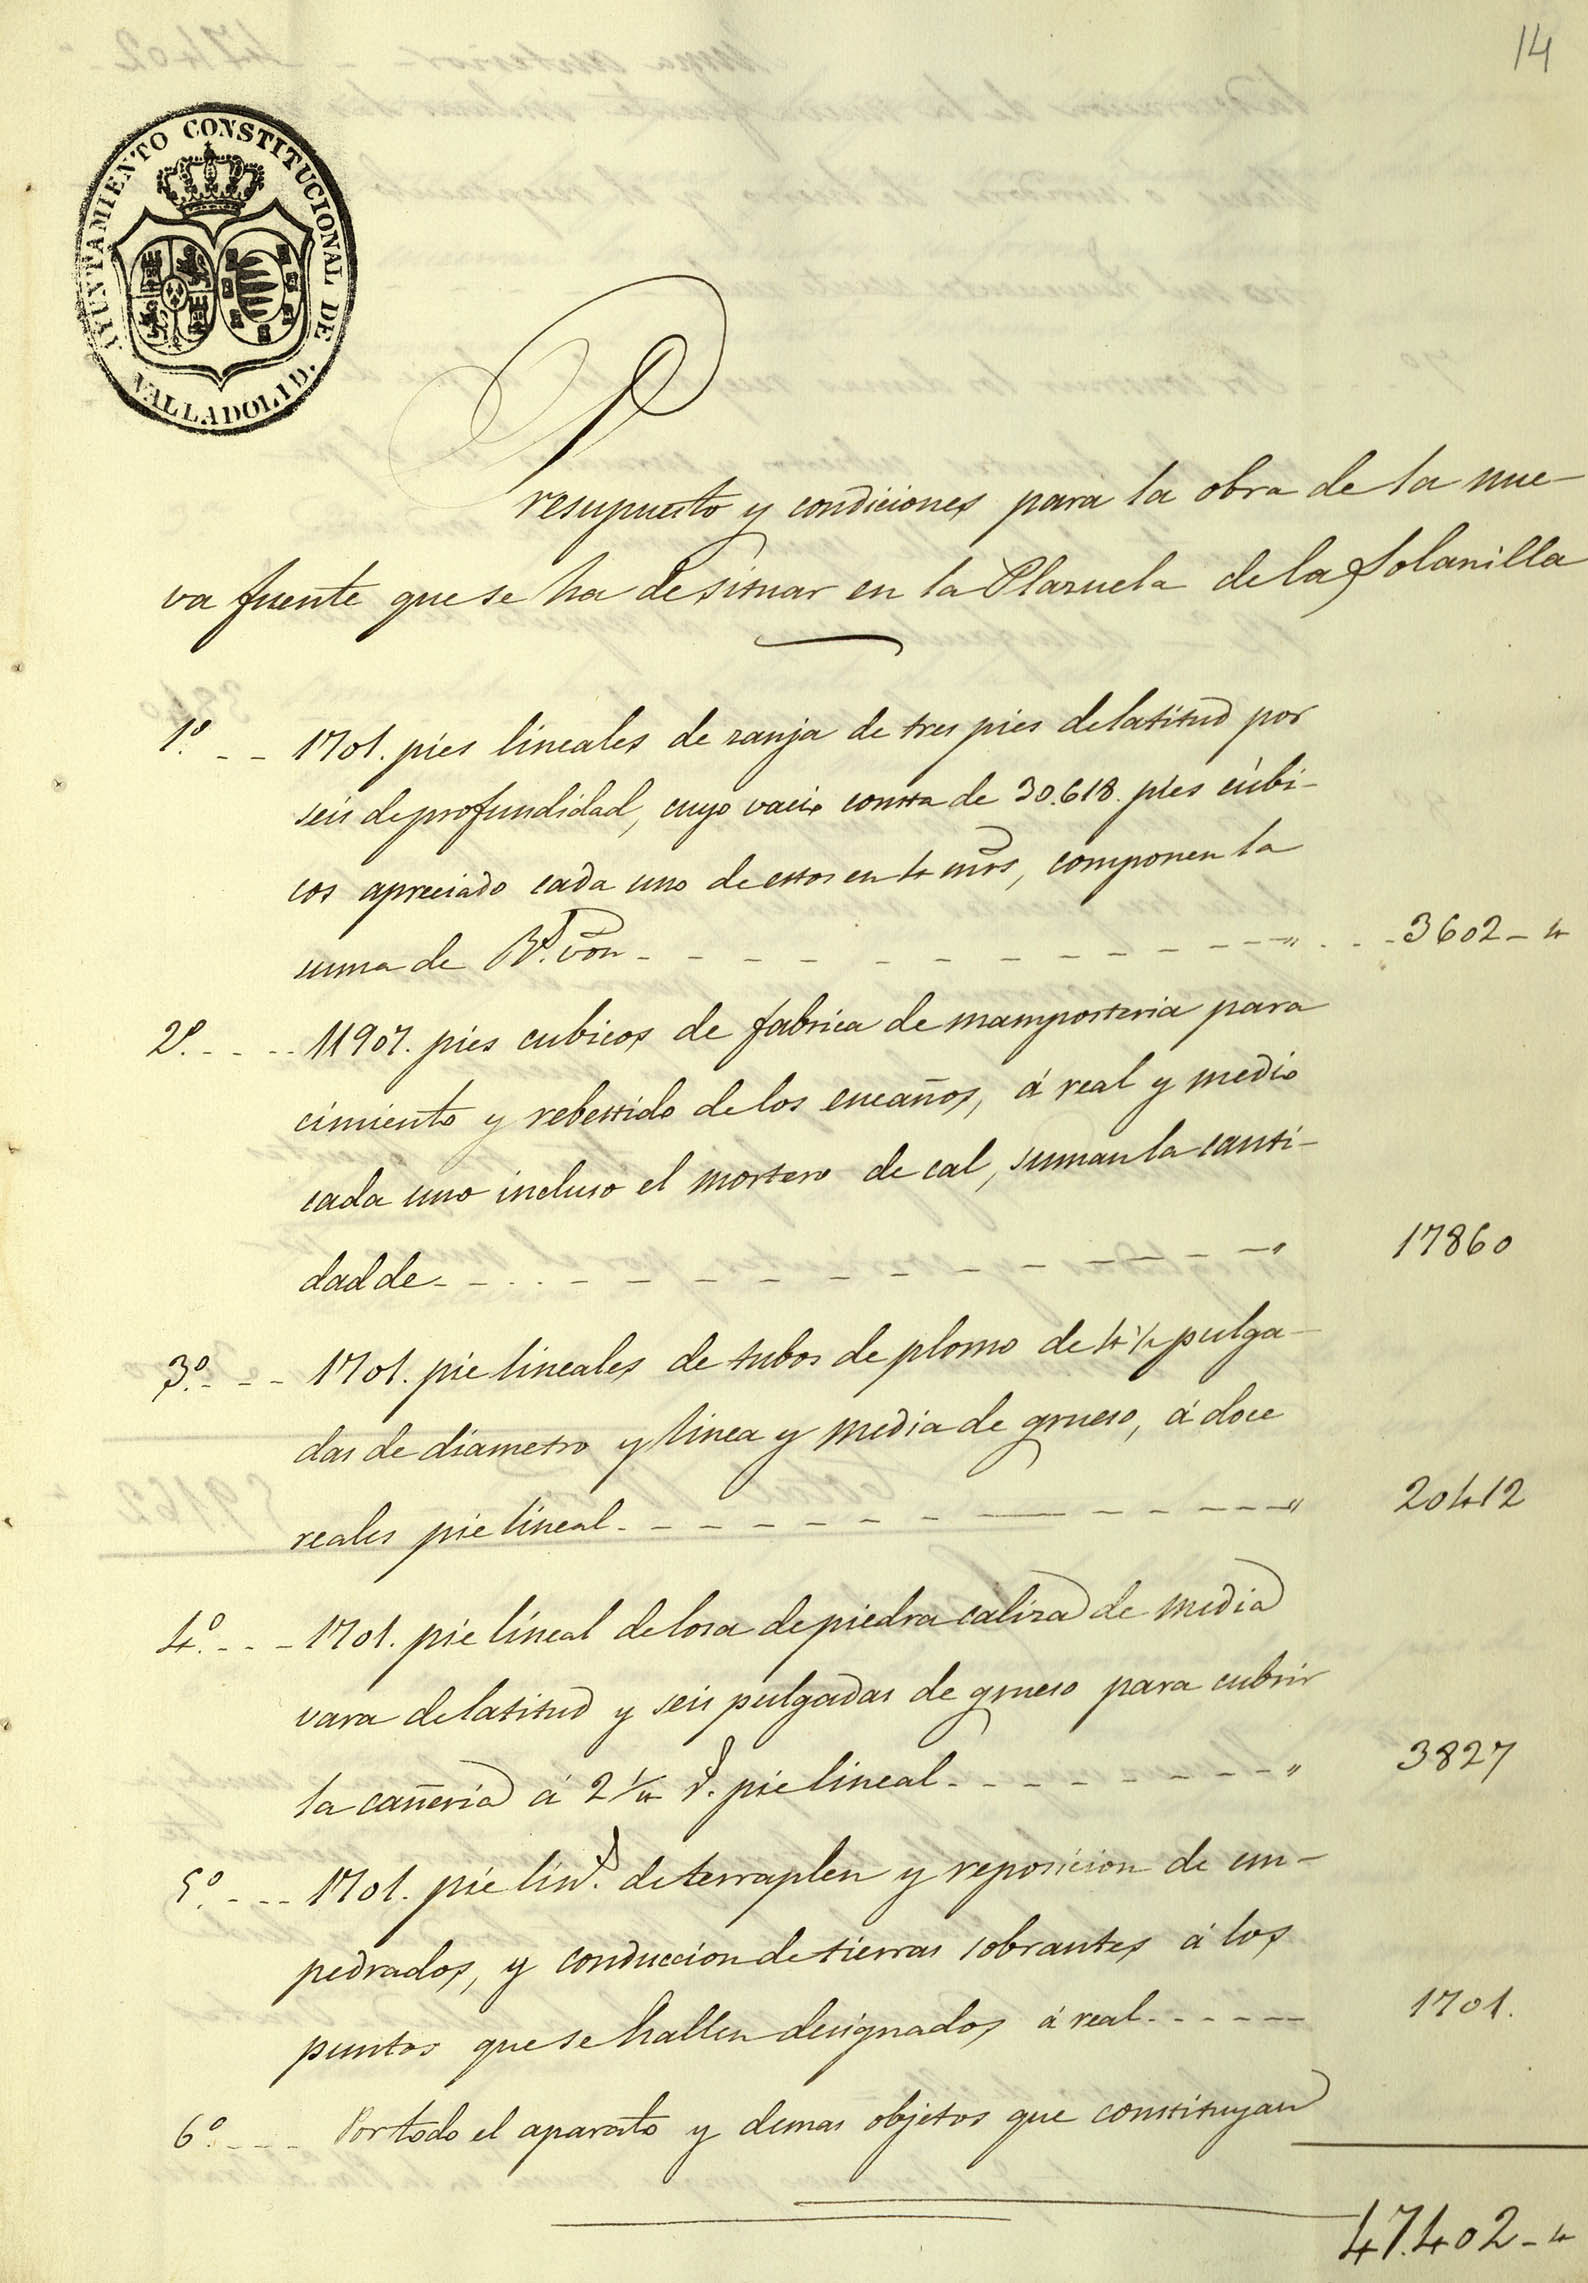 14
AYUNTAMIENTO CONSTITUCIONAL DE
VALLADOLID.
Presupuesto y condiciones para la obra de la nue-
va fuente que se ha de situar en la Plazuela de la Solanilla
1º. - - 1701. pies lineales de zanja de tres pies de latitud por
seis de profundidad, cuyo vacio consta de 30.618. pies cúbi-
cos apreciado cada uno de estos en 4 mrs, componen la
suma de Rl. von - - - - - - - - - - " - - - 3602 - 4
2º. - - - - 11907. pies cubicos de fabrica de mamposteria para
cimiento y rebestido de los encaños, á real y medio
cada uno incluso el mortero de cal, suman la canti-
dad de - - - - - - - - - - - - " 17860
3º. - - - 1701. pie lineales de tubos de plomo de 4 1/2 pulga-
das de diametro y linea y media de grueso, á doce
reales pie lineal. - - - - - - - - - - - " 20412
4º. - - - 1701. pie lineal de losa de piedra caliza de media
vara de latitud y seis pulgadas de grueso para cubrir
la cañeria á 2 1/4 rl. pie lineal - - - - - - - - " 3827
5º. - - - 1701. pie linl. de terraplen y reposicion de em-
pedrados, y conduccion de tierras sobrantes á los
puntos que se hallen designados á real. - - - - - 1701.
6º. - - - - Por todo el aparato y demas objetos que constituyan
47.402 - 4